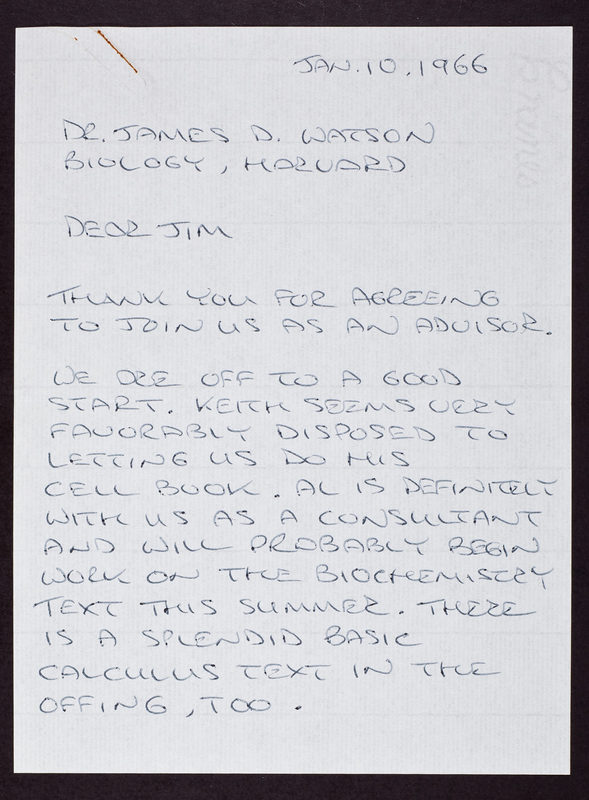 JAN. 10, 1966
DR. JAMES D. WATSON
BIOLOGY, HARVARD
DEAR JIM
THANK YOU FOR AGREEING
TO JOIN US AS AN ADVISOR.
WE ARE OFF TO A GOOD
START. KEITH SEEMS VERY
FAVORABLY DISPOSED TO
LETTING US DO HIS
CELL BOOK. AL IS DEFINITELY
WITH US AS A CONSULTANT
AND WILL PROBABLY BEGIN
WORK ON THE BIOCHEMISTRY
TEXT THIS SUMMER. THERE
IS A SPLENDID BASIC
CALCULUS TEXT IN THE
OFFING, TOO.